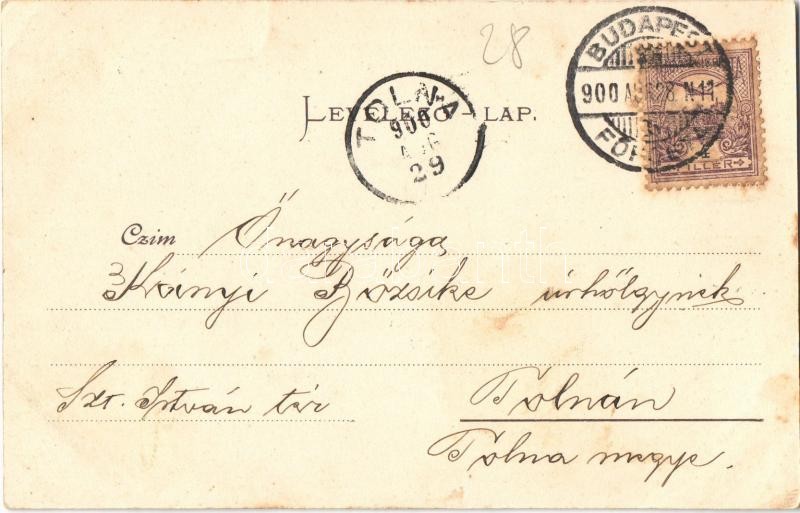 28
BUDAPEST
900 AUG 28 N11
FŐP
FILLER
LEVELEZŐ-LAP.
TOLNA
900
AUG
29
Czim Őnagysága
Kványi Bőzsike úrhölgynek
Szt. István tér Tolnán
Tolna megye.